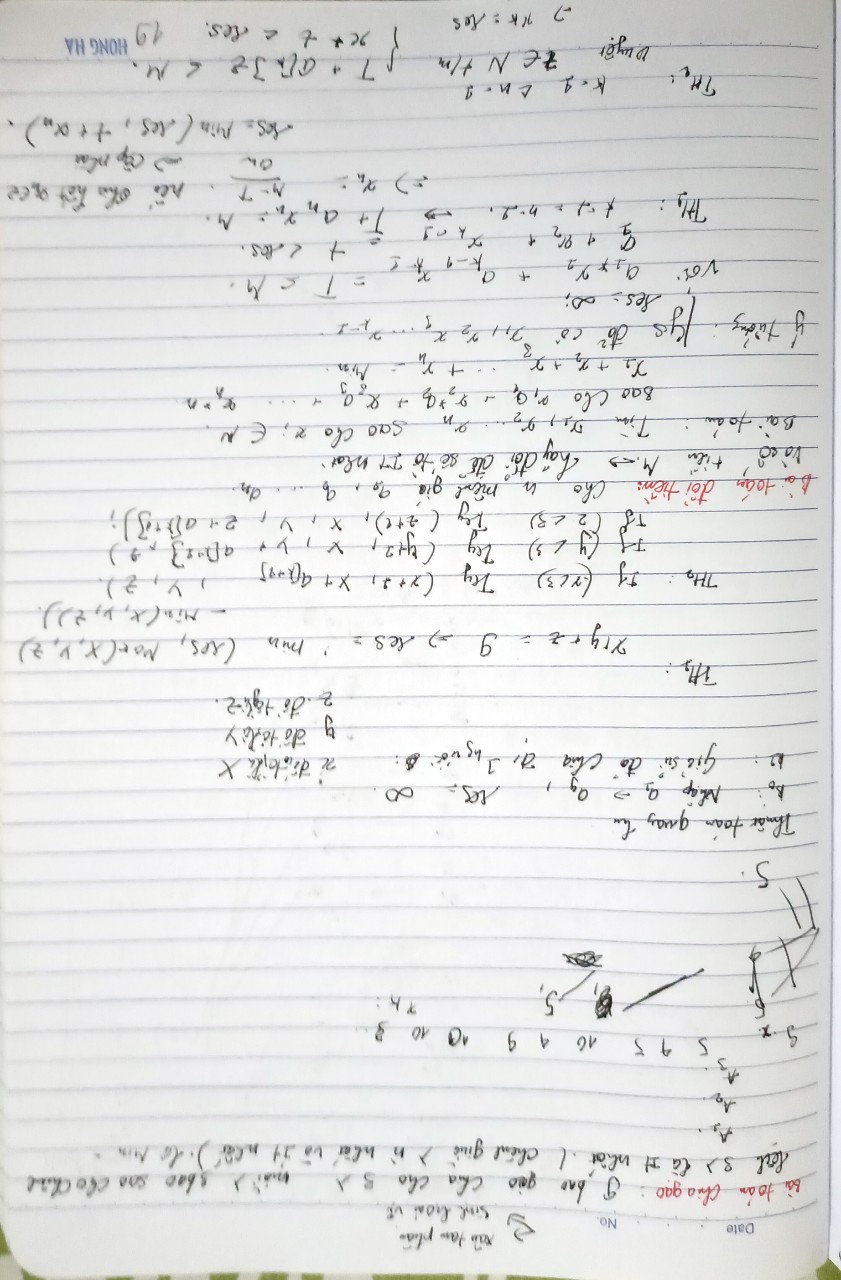 Date No.
xâu tam phân
sinh hoán vị
Bài toán chia gạo: 9 bao gạo chia cho 3 λ mỗi λ 3 bao sao cho chênh
lệch 3 λ là ít nhất. ( chênh giữa λ nhất và ít nhất ). là Min
A1.
A2.
A3.
5 4 5 10 4 9 10 10 3
5, 5,
5.
Thuật toán quay lui
B0: Nhập a1 → a9, res = ∞.
Giả sử đã chia người x đồ tải là X
y đồ tải là Y
z đồ tải là Z.
TH1:
x+y+z = 9 => res = min (res, Max(X, Y, Z)
- Min(X, Y, Z)).
TH2: If (x<3) Try (x+1, X+a[k+1], Y, Z).
If (y<3) Try (y+1, X, Y+ a[k+1], Z)
If (z<3) Try (z+1), X, Y, Z+a[k+1]);
Bài toán đổi tiền: Cho n mệnh giá a1, a2 ... an
và số tiền M. → hãy đổi để số tờ ít nhất.
Bài toán: Tìm x1, x2 ... xn sao cho xi ∈ N.
sao cho x1a1 + x2*a2 + x3a3 + ... xn*n
x1 + x2 + x3 ... + xn = Min.
Ý tưởng: gs đã có x1, x2 x3 ... xk-1
res = ∞;
Với: a1*x1 + ak-1 xk-1 = T < M.
+ x2 + xk-1 = t < res.
TH1: = n-1. → T + an xn = M.
=> xn = M-T / an nếu chia hết
=> cập nhật
res = Min(res, t + xn).
TH2: k-1 < n-1
Duyệt z ∈ N t/m { T + a[k]z < M.
t < res.
=> xk = res
19 HONG HA